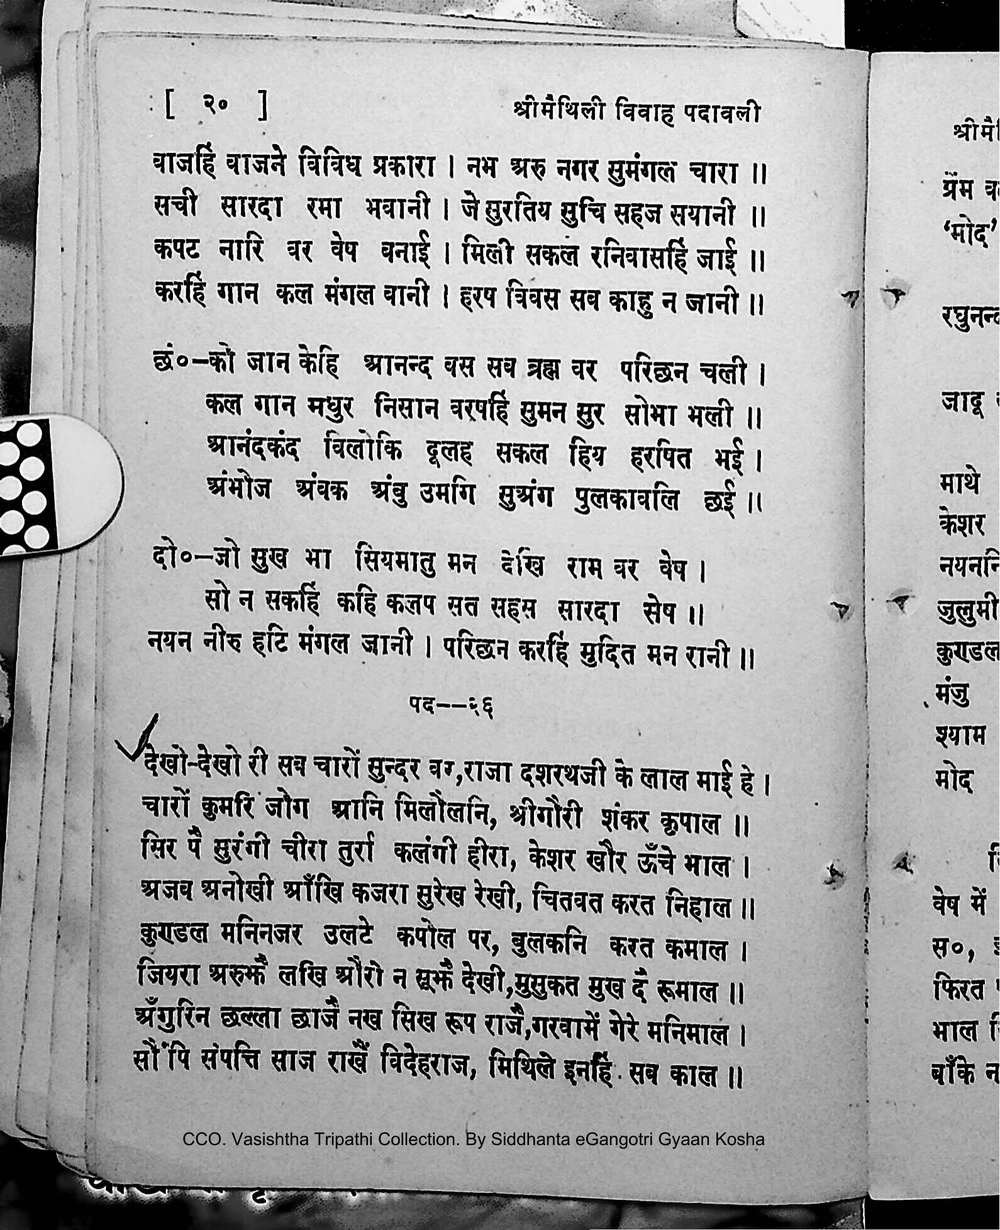 [ २० ] श्रीमैथिली विवाह पदावली
वाजहिं वाजने विविध प्रकारा । नभ अरु नगर सुमंगल चारा ॥
सची सारदा रमा भवानी । जे सुरतिय सुचि सहज सयानी ॥
कपट नारि वर वेष वनाई । मिली सकल रनिवासहिं जाई ॥
करहिं गान कल मंगल वानी । हरष विवस सव काहु न जानी ॥
छं०–को जान केहि आनन्द वस सब ब्रह्म वर परिछन चली ।
कल गान मधुर निसान वरषहिं सुमन सुर सोभा भली ॥
आनंदकंद विलोकि दूलह सकल हिय हरषित भई ।
अंभोज अंवक अंवु उमगि सुअंग पुलकावलि छई ॥
दो०–जो सुख भा सियमातु मन देखि राम वर वेष ।
सो न सकहिं कहि कलप सत सहस सारदा सेष ॥
नयन नीरु हटि मंगल जानी । परिछन करहिं मुदित मन रानी ॥
पद--२६
देखो-देखो री सब चारों सुन्दर वर,राजा दशरथजी के लाल माई हे ।
चारों कुमरि जोग आनि मिलौलनि, श्रीगौरी शंकर कृपाल ॥
सिर पै सुरंगी चीरा तुर्रा कलंगी हीरा, केशर खौर ऊँचे भाल ।
अजब अनोखी आँखि कजरा सुरेख रेखी, चितवत करत निहाल ॥
कुण्डल मनिनजर उलटे कपोल पर, वुलकनि करत कमाल ।
जियरा अरुझै लखि औरो न सूझै देखी,मुसुकत मुख दै रूमाल ॥
अँगुरिन छल्ला छाजै नख सिख रूप राजै,गरवामें गेरे मनिमाल ।
सौंपि संपत्ति साज राखैं विदेहराज, मिथिले इनहिं सब काल ॥
CCO. Vasishtha Tripathi Collection. By Siddhanta eGangotri Gyaan Kosha
प्रेम
'मोद'
जादू
माथे
केशर
जुलुमी
कुण्डल
मंजु
श्याम
मोद
वेष में
स०,
फिरत
भाल
बाँके